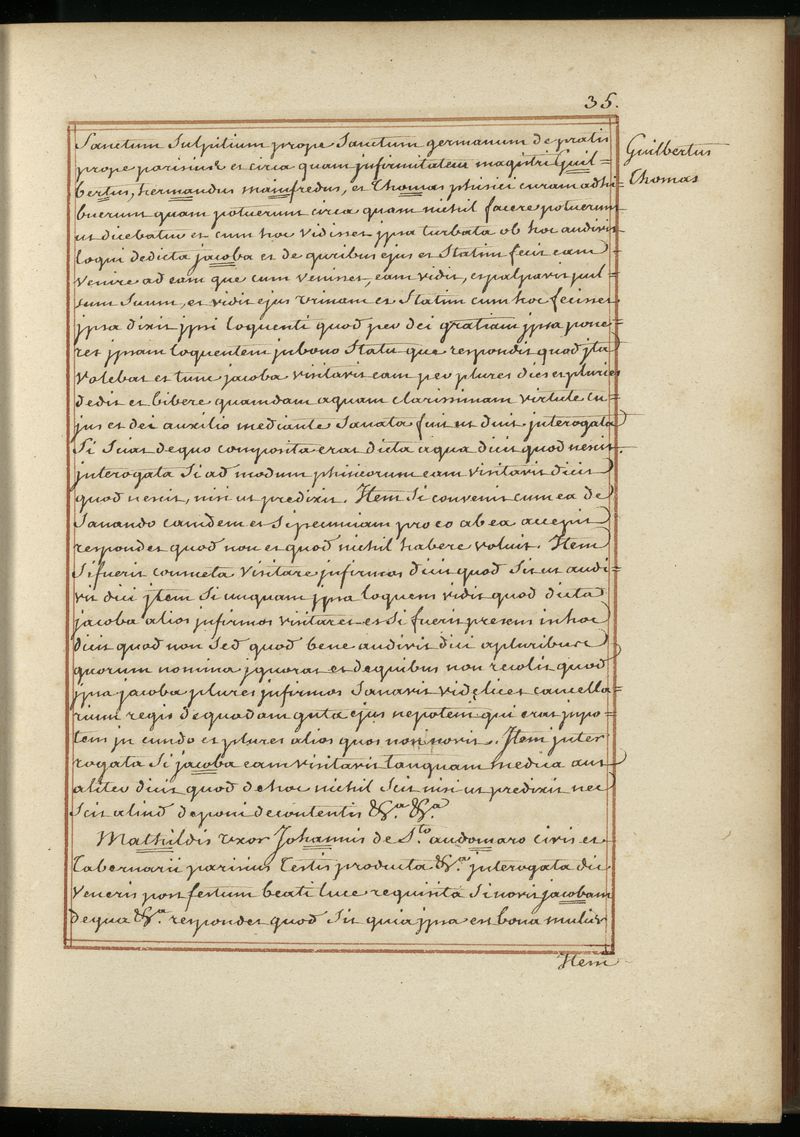 35.
Sanctum Sulpitium prope Sanctum germanum de pratis
prope parisius et circa quam jnfirmitatem magistri Guil=
bertus, hermandus mainfredus, et Thomas phisici curam adhi=
buerunt quam potuerunt circa quam nichil facere potuerunt
ut dicebatur et cum hoc vidisset jpsa turbata ob hoc audivit
loqui de dicta jacoba et de quribus ejus et Statim fecit eam
venire ad eam que cum venisset, eam vidit, et palpavit pul=
sum Suum, et vidit ejus vrinam et Statim cum hoc fecisset
jpsa dixit jpsi loquenti quod per dei gratiam jpsa pone=
ret jpsam loquentem jn bono Statu que respondit quod jta
volebat et tunc jacoba visitavit eam per plures dies et pluries
dedit ei bibere quamdam aquam clarissimam virtute cu=
jus et dei auxilio mediante Sanata fuit ut dicit jnterogata
Si Sciat de quo composita erat dicta aqua dicit quod nescit.
jnterogata Si ad modum phisicorum eam visitavit dicit
quod nescit, nisi ut predixit. Item Si convenit cum ea de
Sanando eamdem et Si pecuniam pro eo ab ea accepit
respondet quod non et quod nichil habere voluit. Item
Si fuerit consueta visitare jnfirmos dicit quod Sit ut audi=
vit dici jtem Si unquam jpsa loquens vidit quod dicta
jacoba alios jnfirmos visitaret et Si fuerit presens in hoc
dicit quod non Sed quod bene audivit dici a pluribus
quorum nomina jgnorat et de quibus non recolit quod
jpsa jacoba plures jnfirmos Sanavit videlicet cancella=
rium regis de quadam guta ejus nepotem qui erat jnpo=
tem jn eundo et plures alios quos non novit. Item jnter
rogata Si jacoba eam visitavit tanquam medica aut
aliter dicit quod de hoc nichil Scit nisi ut predixit nec
Scit aliud deponi de contentis &c.a &c.a
Mathildis vxor Johannis de S.to audomaro civis et
Tabernarii parisius Testis producta &c.a jnterogata die
veneris post festum beati luce requisita Si novit jacobam
de qua &c.a respondet quod Sit quia jpsa est bona mulier
Item
Guilbertus
Thomas